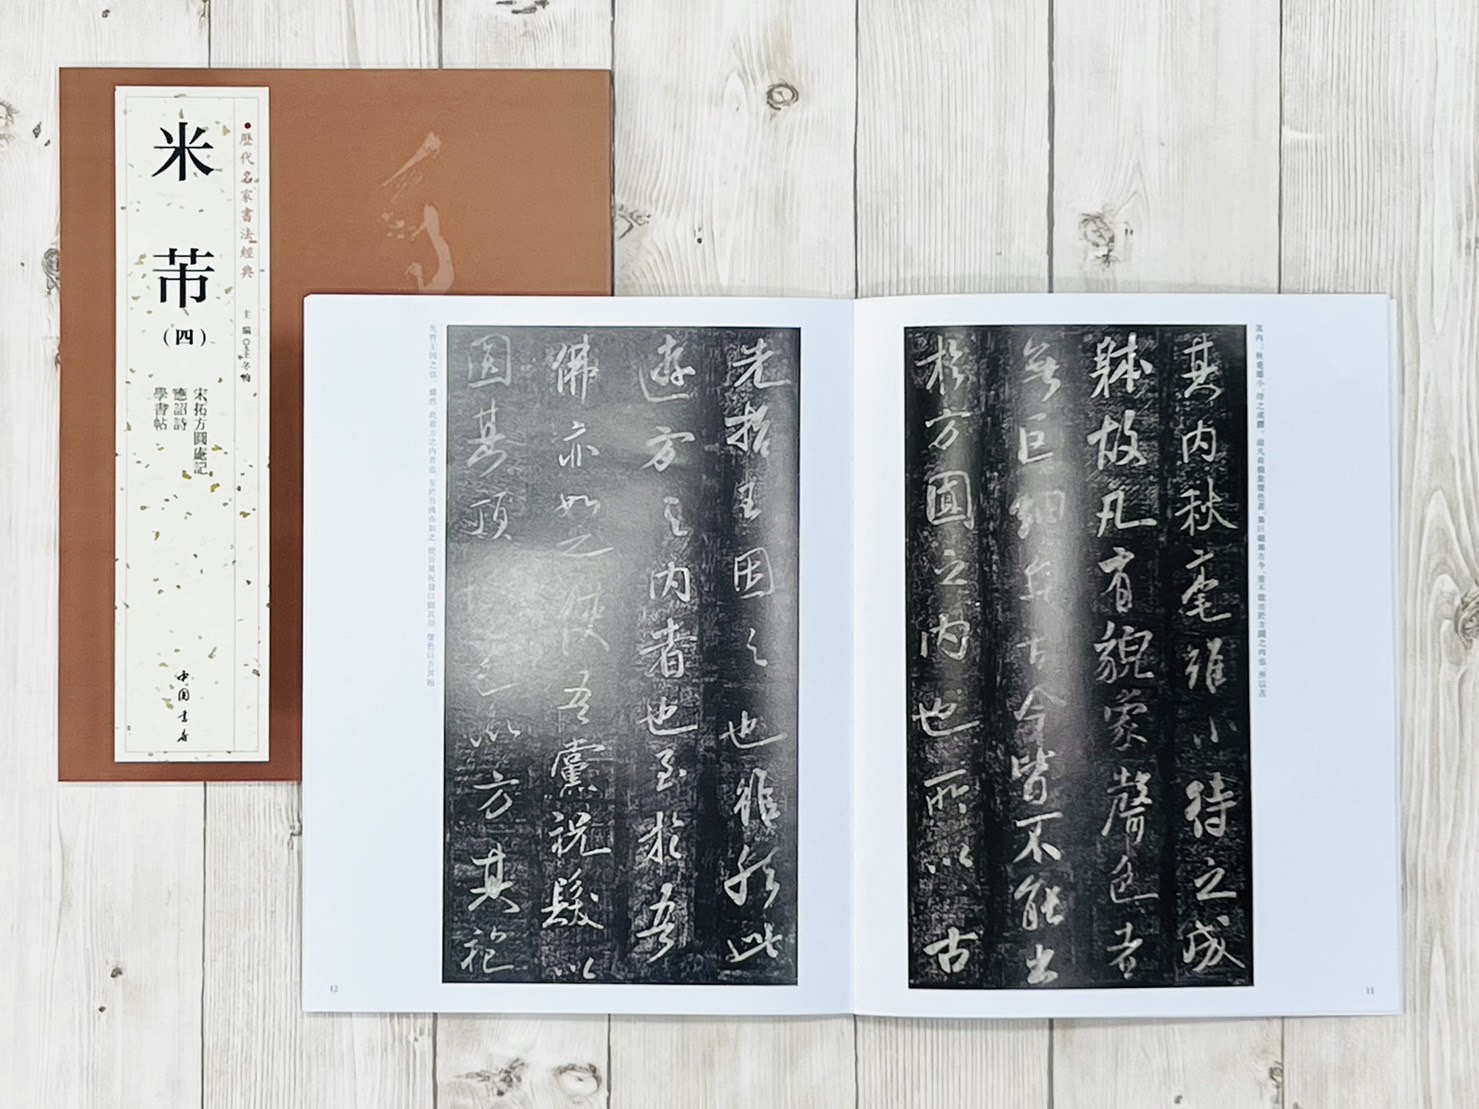 歷代名家書法經典
主編
米芾
（四）
宋拓方圓庵記
應詔詩
學書帖
中国书店
其内秋毫雖小待之成
體故凡有貌象聲色者
無巨細與古今皆不能出
於方圓之内也所以古
11
先哲王因之也雖然此
遊方之内者也至於吾
佛亦如之使吾黨祝髮以
圓其頂色以方其袍
12